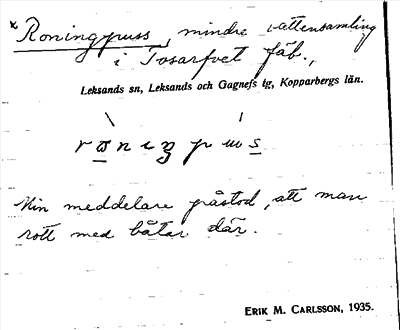 x Roningpuss, mindre vattensamling
i Tosarfvet fäb.,
Leksands sn, Leksands och Gagnefs tg, Kopparbergs län.
Min meddelare påstod, att man
rott med båtar där.
ERIK M. CARLSSON, 1935.